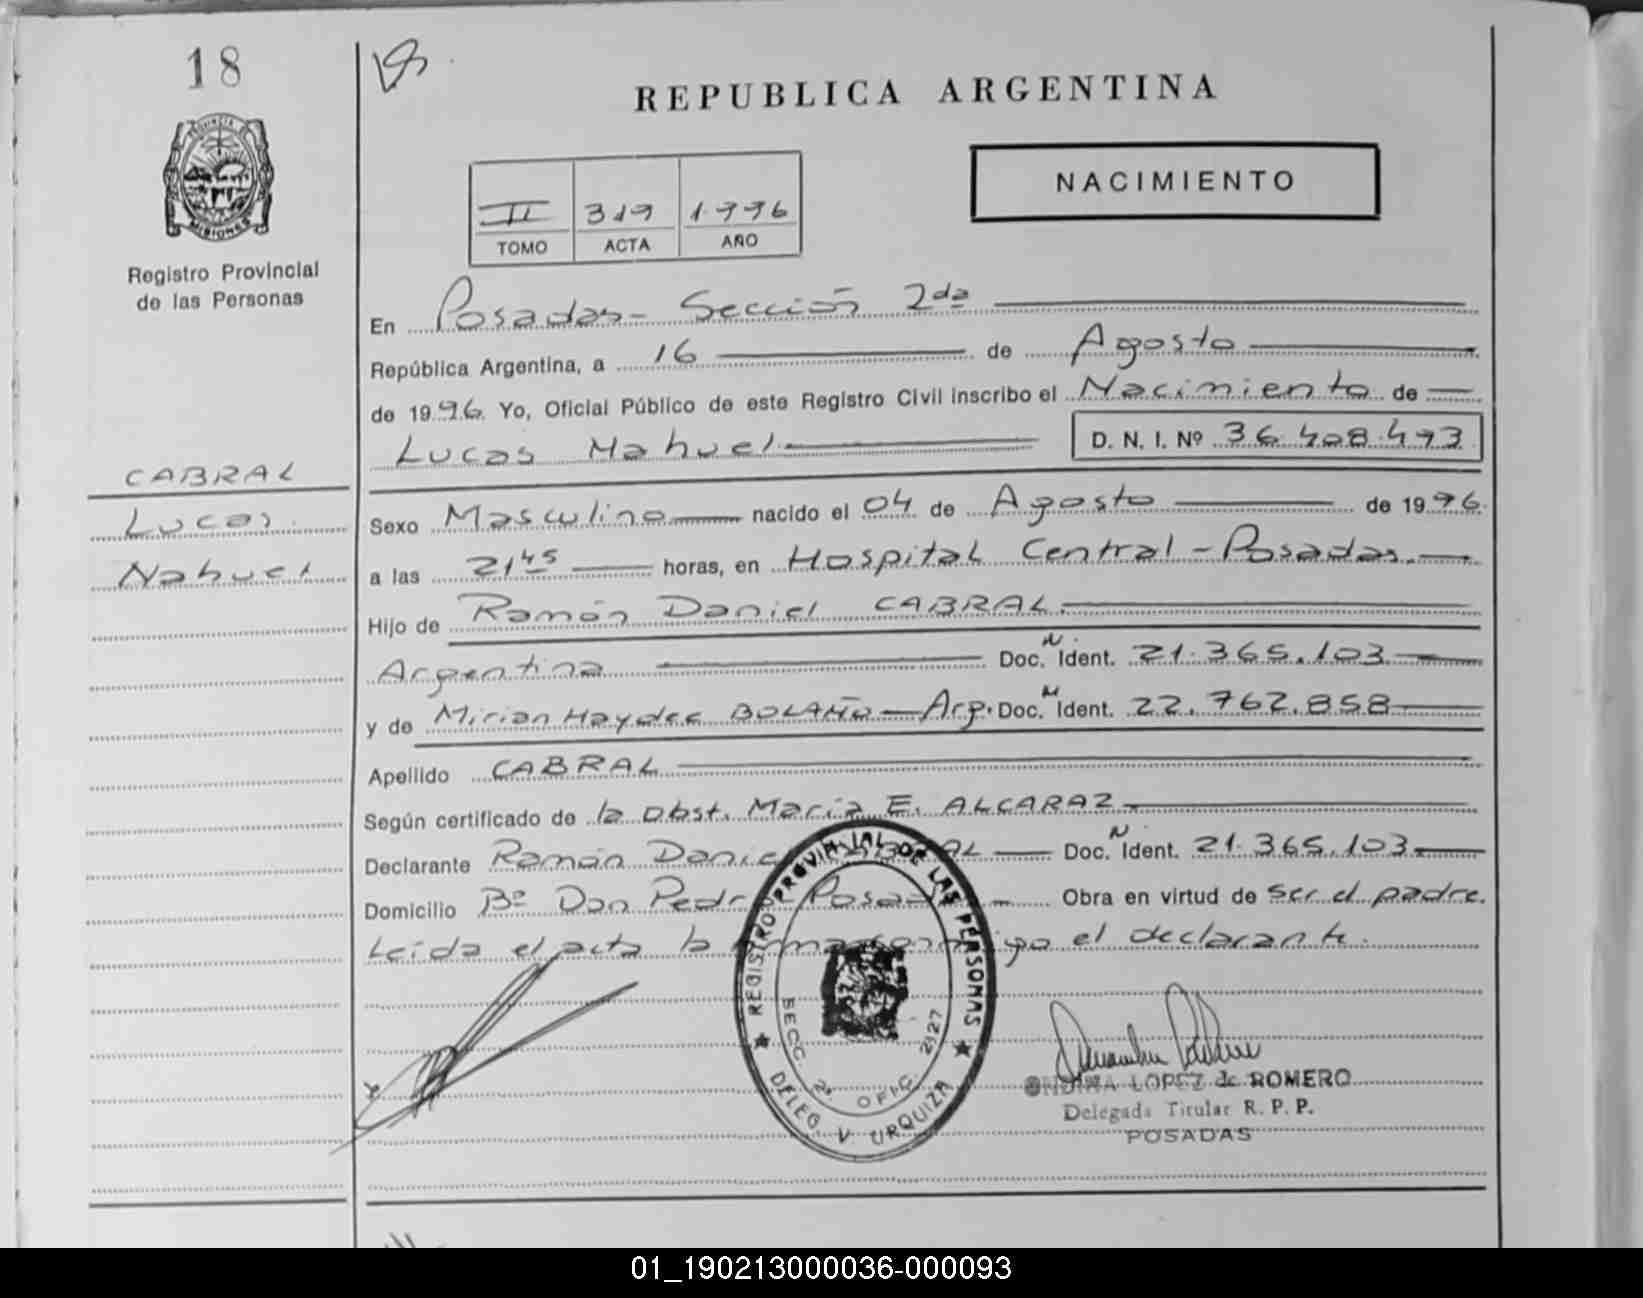 18
REPUBLICA ARGENTINA
NACIMIENTO
PROVINCIA DE
MISIONES
Registro Provincial
de las Personas
II 319 1996
TOMO ACTA AÑO
En Posadas - Sección 2da
República Argentina, a 16 de Agosto
de 1996. Yo, Oficial Público de este Registro Civil inscribo el Nacimiento de
Lucas Nahuel D. N. I. Nº 36.408.493
CABRAL
Lucas
Nahuel
Sexo Masculino nacido el 04 de Agosto de 1996.
a las 21 45 horas, en Hospital Central - Posadas.
Hijo de Ramón Daniel CABRAL
Argentina Doc. N Ident. 21.365.103
y de Mirian Haydee BOLAÑO - Arg. Doc. N Ident. 22.762.858
Apellido CABRAL
Según certificado de la Obst. María E. ALCARAZ
Declarante Ramón Daniel CABRAL Doc. N Ident. 21.365.103
Domicilio Bº Don Pedro Posadas Obra en virtud de ser el padre.
Leída el acta la firma conmigo el declarante.
REGISTRO PROVINCIAL DE LAS PERSONAS
SECC. 2ª OFIC. 2127
DELEG V URQUIZA
LOPEZ de ROMERO
Delegada Titular R. P. P.
POSADAS
01_190213000036-000093